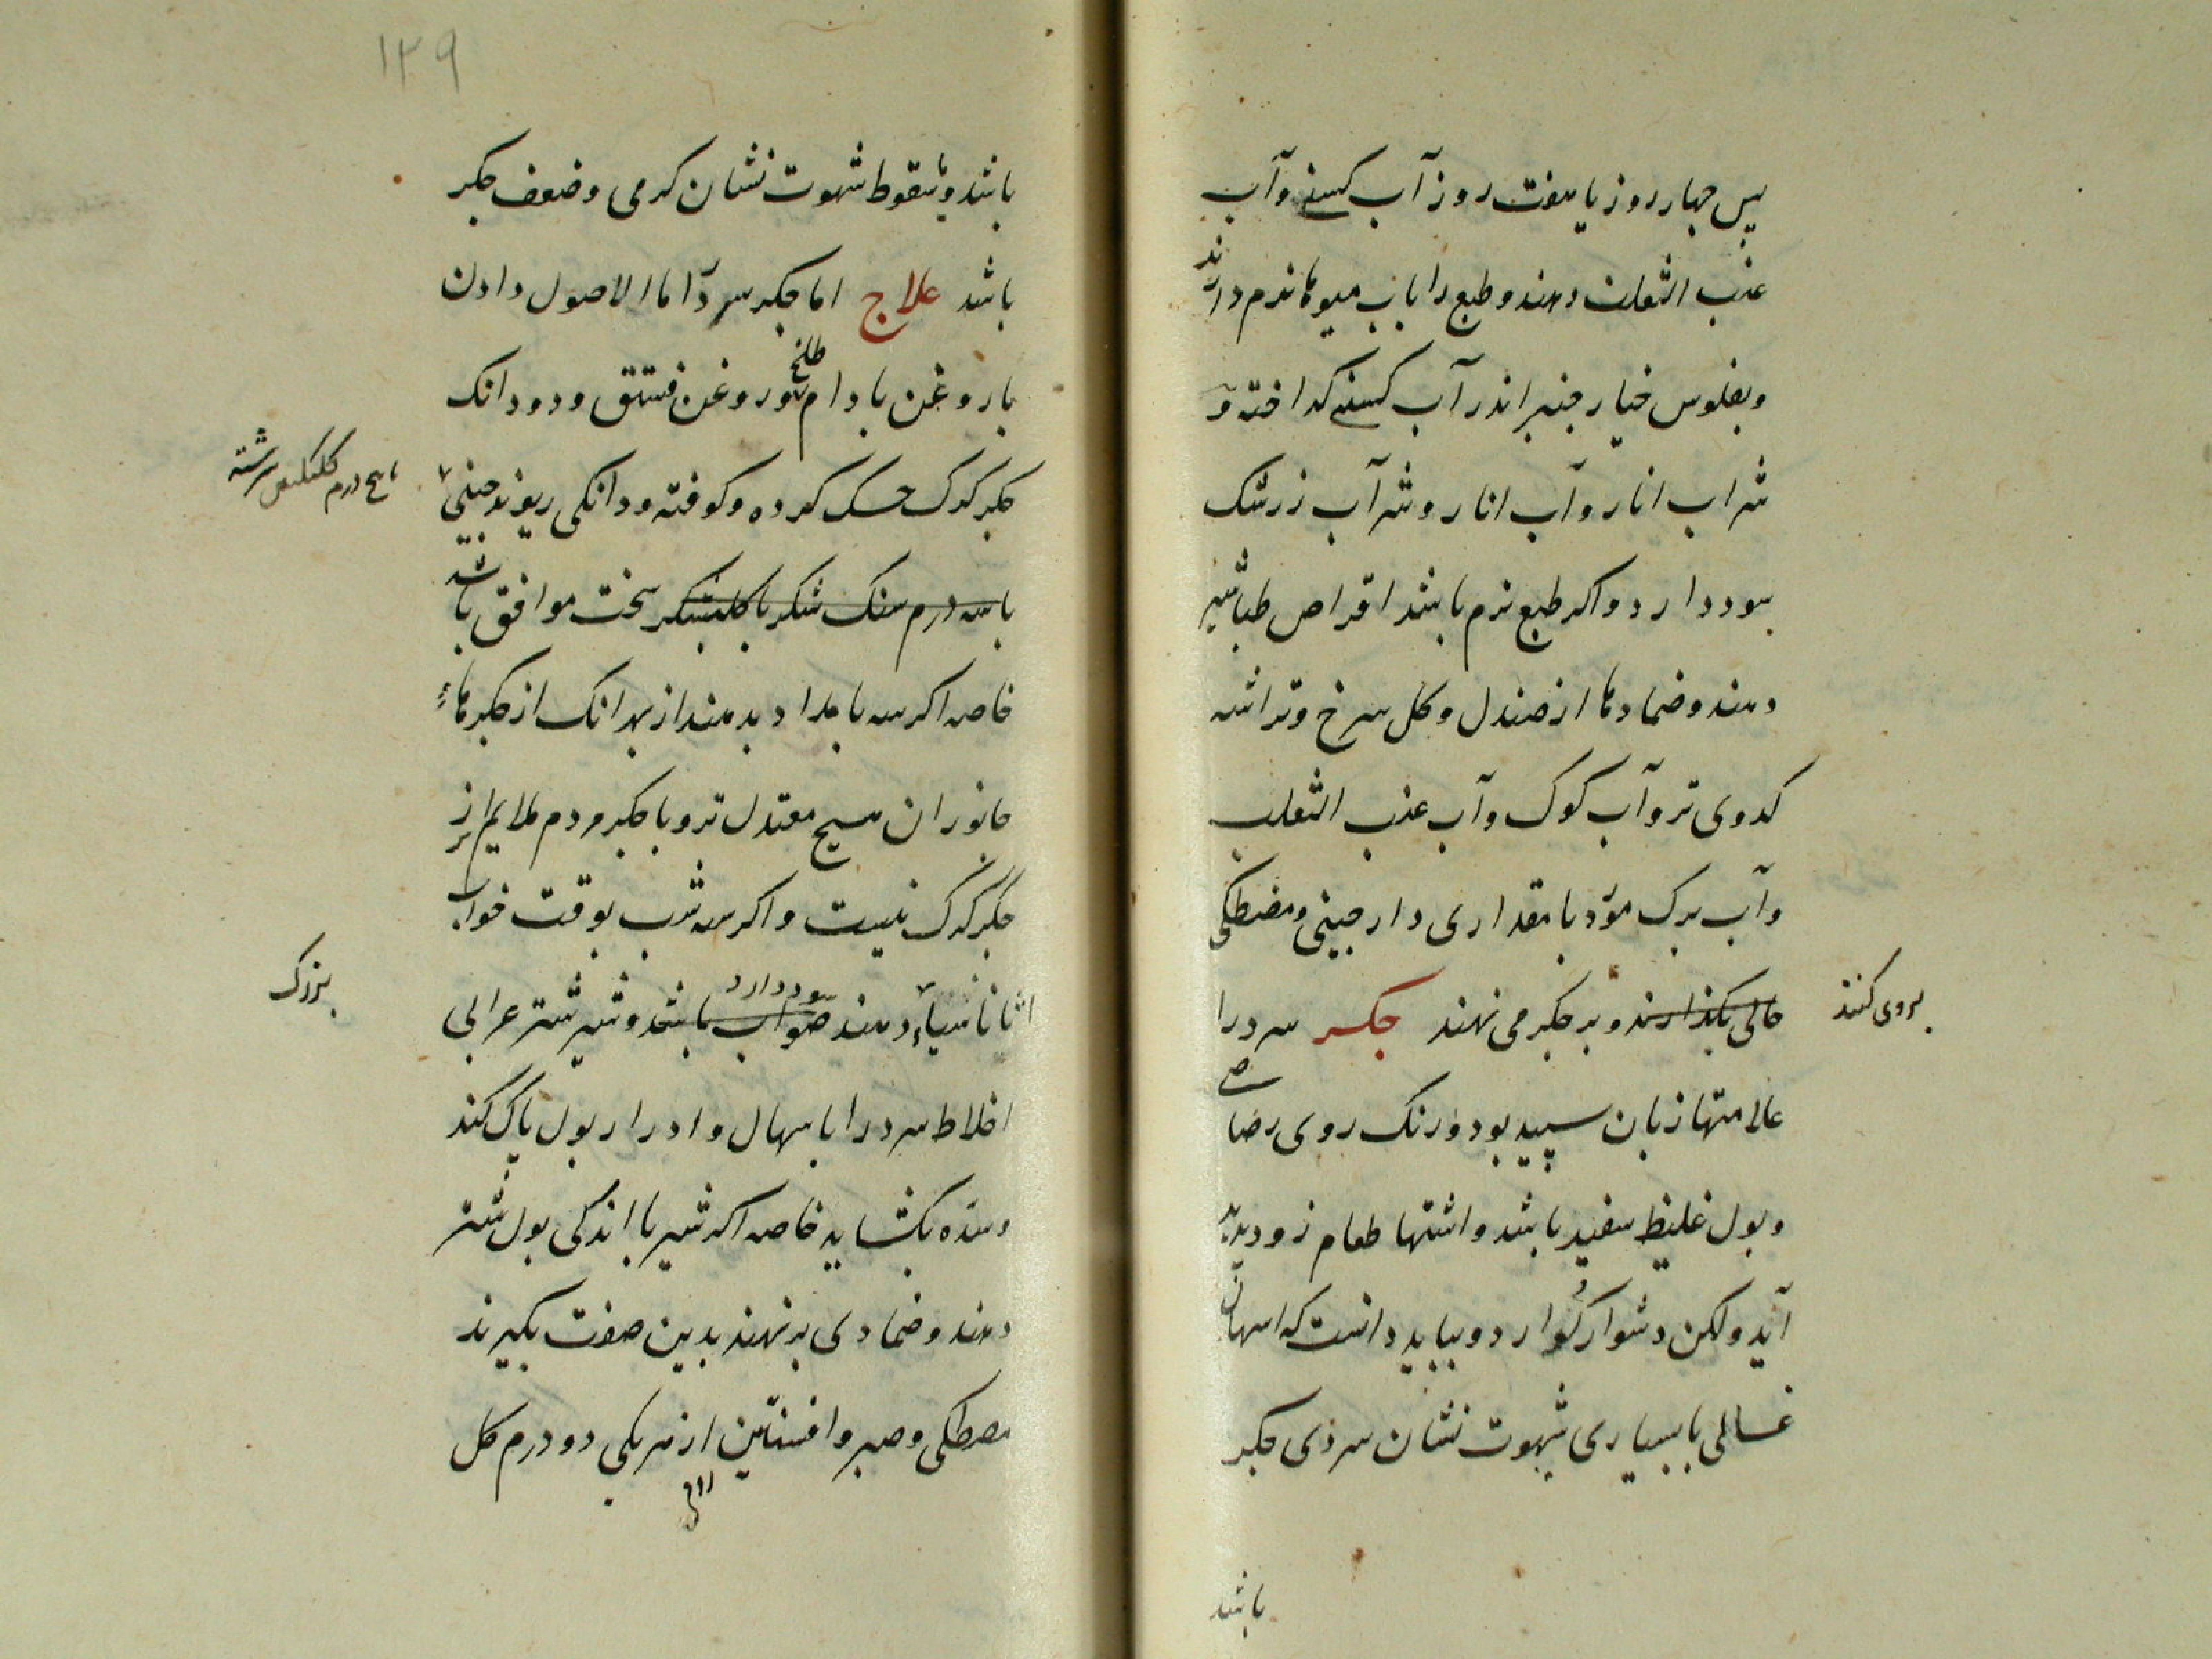 پس چهار روز یا هفت روز آب کسنی و آب
عنب الثعلب دهند و طبع را باب میوها نرم دارند
و بفلوس خیار چنبر اندر آب کسنی کداخته و
شراب انار و آب انار و شراب زرشک
سود دارد و اکر طبع نرم باشد اقراص طباشیر
دهند و ضمادها از صندل و کل سرخ و تراشه
کدوی تر و آب کوک و آب عنب الثعلب
و آب برک مورد با مقداری دارچینی و مصطکی
بروی کنند
حالی بکذارند و بر جکر می نهند جکر سرد را
علامتها زبان سپید بود و رنک روی رصاصی
و بول غلیظ سفید باشد و اشتها طعام زود پدید
آید ولکن دشوار کوارد و بباید دانست که اسهال
غسالی با بسیاری شهوت نشان سردی جکر
باشد
۱۲۹
باشد و با سقوط شهوت نشان کرمی و ضعف جکر
باشد علاج اما جکر سرد را ماالاصول دادن
با روغن بادام طلخ و روغن فستق و دو دانک
جکر کرک خشک کرده و کوفته و دانکی ریوند چینی
با پنج درم کلنکبین سرشته
با سه درم سنک شکر یا کلبشکر سخت موافق باشد
خاصه اکر سه بامداد بدهند از بهر انک از جکرهاء
جانوران هیچ معتدل تر و با جکر مردم ملایم تر از
جکر کرک نیست و اکر سه شب بوقت خواب
اثاناسیاء بزرک دهند صواب باشد سود دارد و شیر شتر عرابی
اخلاط سرد را باسهال و ادرار بول پاک کند
و سده بکشاید خاصه اکر شیر با اندکی بول شتر
دهند و ضمادی بر نهند بدین صفت بکیرند
مصطکی و صبر و افسنتین از هر یکی دو درم کل